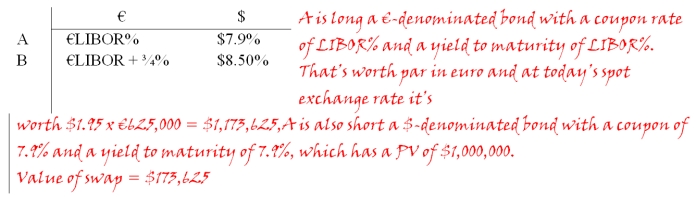 € $
A €LIBOR% $7.9%
B €LIBOR + ¾% $8.50%
A is long a €-denominated bond with a coupon rate
of LIBOR% and a yield to maturity of LIBOR%.
That's worth par in euro and at today's spot
exchange rate it's
worth $1.95 x €625,000 = $1,173,625,A is also short a $-denominated bond with a coupon of
7.9% and a yield to maturity of 7.9%, which has a PV of $1,000,000.
Value of swap = $173,625